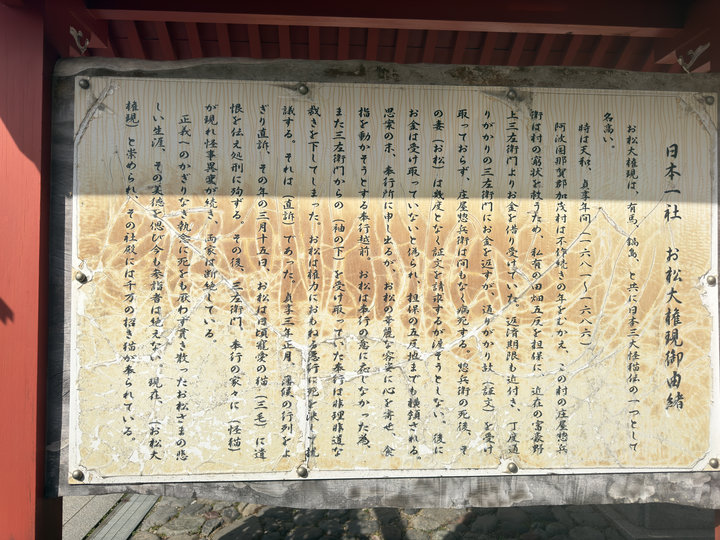 日本一社　お松大権現御由緒
お松大権現は、有馬、鍋島、と共に日本三大怪猫伝の一つとして
名高い。
時は天和、貞享年間（一六八一〜一六八六）
阿波国那賀郡加茂村は不作続きの年をむかえ、この村の庄屋惣兵
衛は村の窮状を救うため、私有の田畑五反を担保に、近在の富豪野
上三左衛門よりお金を借り受けていた。返済期限も近付き、丁度通
りがかりの三左衛門にお金を返すが、通りがかり故（証文）を受け
取っておらず、庄屋惣兵衛は間もなく病死する。惣兵衛の死後、そ
の妻（お松）は幾度となく証文を請求するが渡そうとしない。後に
お金は受け取っていないと偽られ、担保の五反地までも横領される。
思案の末、奉行所に申し出るが、お松の華麗な容姿に心を寄せ、食
指を動かそうとする奉行越前、お松は奉行の意に応じなかった為、
また三左衛門からの（袖の下）を受け取っていた奉行は非理非道な
裁きを下してしまった。お松は権力におもねる悪行に死を決して抗
議する。それは（直訴）であった。貞享三年正月、藩候の行列をよ
ぎり直訴、その年の三月十五日、お松は日頃寵愛の猫（三毛）に遺
恨を伝え処刑に殉ずる。その後、三左衛門、奉行の家々に（怪猫）
が現れ怪事異変が続き、両家は断絶している。
正義へのかぎりなき執念に死をも厭わず貫き散ったお松さまの悲
しい生涯、その美徳を偲び今も参詣者は絶えない。現在、（お松大
権現）と崇められ、その社殿には千万の招き猫が奉られている。